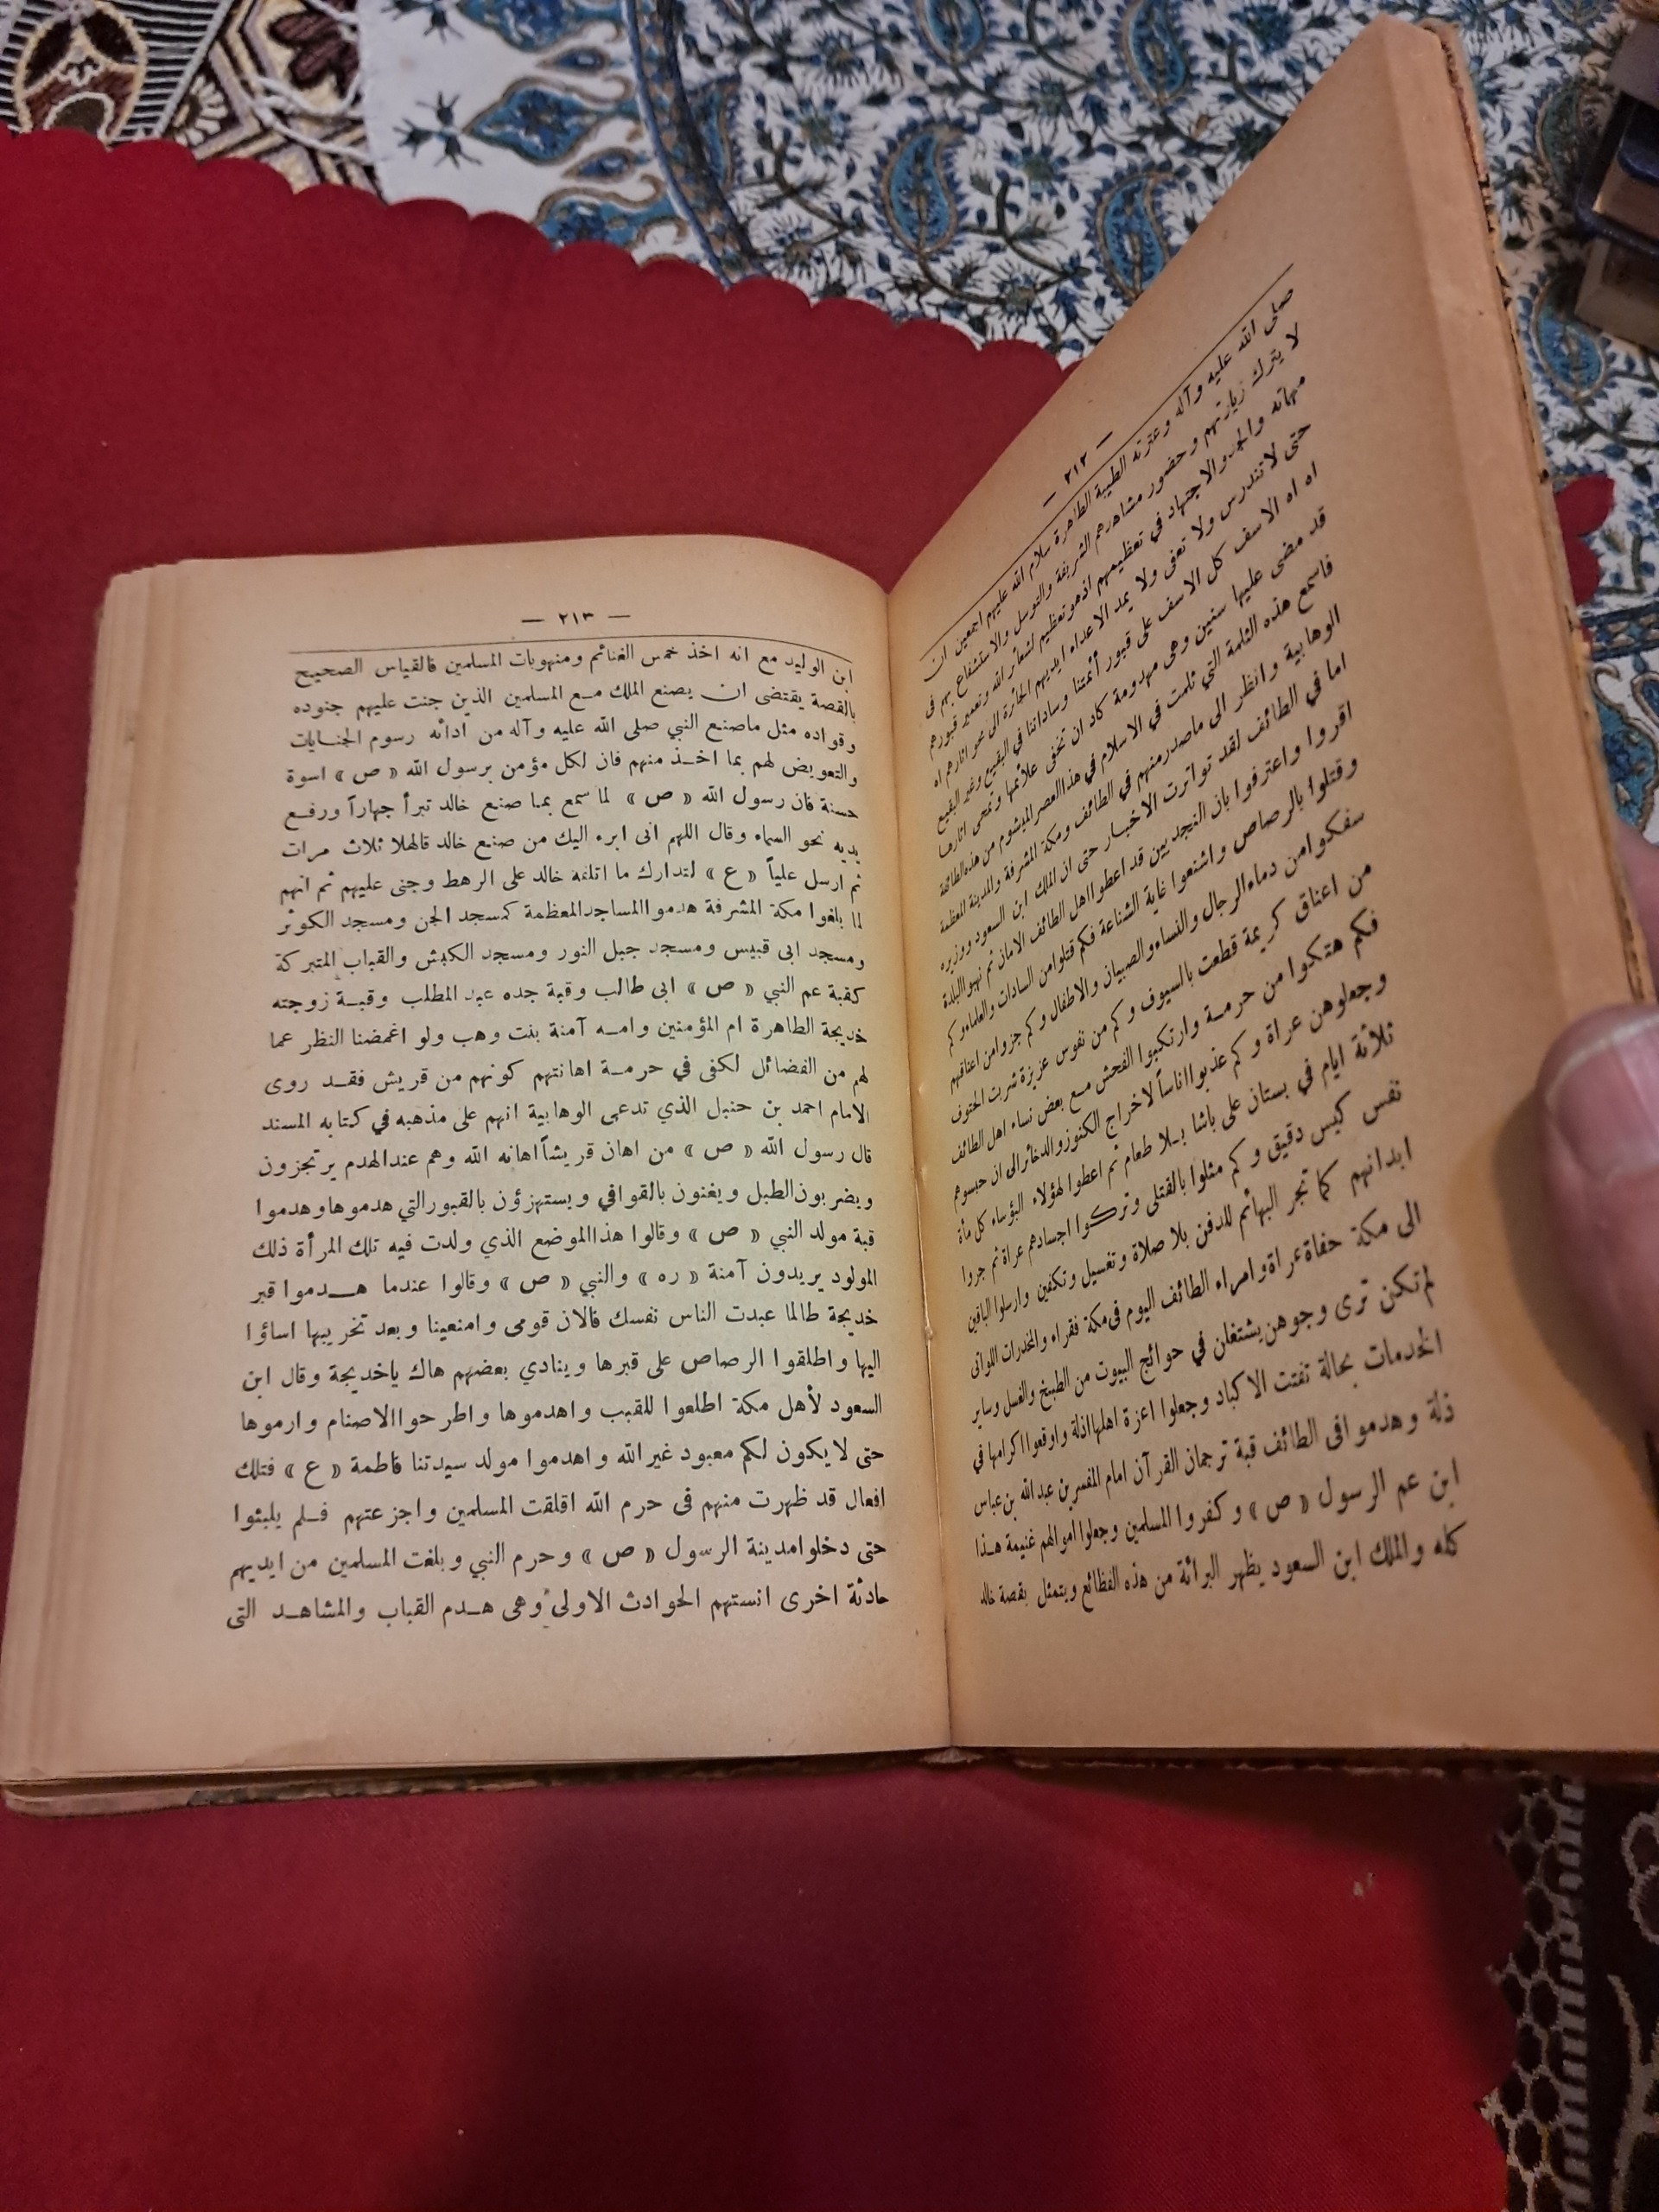 — ٢١٢ —
صلى الله عليه وآله وعترته الطيبة الطاهرة سلام الله عليهم اجمعين ان
لا يترك زيارتهم وحضور مشاهدهم الشريفة والتوسل والاستشفاع بهم فى
مهماته والجد والاجتهاد في تعظيمهم اذ هو تعظيم لشعائر الله وتعمير قبورهم
حتى لا تندرس ولا تعفى ولا يمد الاعداء ايديهم الجائرة الى محو اثارهم اه
اه اه الاسف كل الاسف على قبور أئمتنا وساداتنا في البقيع وغير البقيع
قد مضى عليها سنين وهى مهدومة كاد ان تخفى علائمها وتمحى اثارها
فاسمع هذه الثلمة التي ثلمت في الاسلام في هذا العصر الميشوم من هذه الطائفة
الوهابية وانظر الى ماصدر منهم في الطائف ومكة المشرفة والمدينة المعظمة
اما في الطائف لقد تواترت الاخبار حتى ان الملك ابن السعود ووزيره
اقروا واعترفوا بان النجديين قد اعطوا اهل الطائف الامان ثم نهبوا البلدة
وقتلوا بالرصاص واشنعوا غاية الشناعة فكم قتلوا من السادات والعلماء وكم
سفكوا من دماء الرجال والنساء والصبيان والاطفال وكم جزوا من اعناقهم
من اعناق كريمة قطعت بالسيوف وكم من نفوس عزيزة شربت الحتوف
فكم هتكوا من حرمة وارتكبوا الفحش مع بعض نساء اهل الطائف
وجعلوهن عراة وكم عذبوا اناساً لاخراج الكنوز والدخائر الى ان حبسوهم
ثلاثة ايام في بستان على باشا بلا طعام ثم اعطوا لهؤلاء البؤساء كل مأة
نفس كيس دقيق وكم مثلوا بالقتلى وتركوا اجسادهم عراة ثم جروا
ابدانهم كما تجر البهائم للدفن بلا صلاة وتغسيل وتكفين وارسلوا الباقين
الى مكة حفاة عراة وامراء الطائف اليوم فى مكة فقراء والمخدرات اللواتى
لم تكن ترى وجوهن يشتغلن في حوائج البيوت من الطبخ والغسل وساير
الخدمات بحالة تفتت الاكباد وجعلوا اعزة اهلها اذلة واوقعوا اكرامها في
ذلة وهدموا فى الطائف قبة ترجمان القرآن امام المفسرين عبد الله بن عباس
ابن عم الرسول « ص » وكفروا المسلمين وجعلوا اموالهم غنيمة هذا
كله والملك ابن السعود يظهر البرائة من هذه الفظائع ويتمثل بقصة خالد
— ٢١٣ —
ابن الوليد مع انه اخذ خمس الغنائم ومنهوبات المسلمين فالقياس الصحيح
بالقصة يقتضى ان يصنع الملك مع المسلمين الذين جنت عليهم جنوده
وقواده مثل ماصنع النبي صلى الله عليه وآله من ادائه رسوم الجنايات
والتعويض لهم بما اخذ منهم فان لكل مؤمن برسول الله « ص » اسوة
حسنة فان رسول الله « ص » لما سمع بما صنع خالد تبرأ جهاراً ورفع
يديه نحو السماء وقال اللهم انى ابرء اليك من صنع خالد قالهلا ثلاث مرات
ثم ارسل علياً « ع » لتدارك ما اتلفه خالد على الرهط وجنى عليهم ثم انهم
لما بلغوا مكة المشرفة هدموا المساجد المعظمة كمسجد الجن ومسجد الكوثر
ومسجد ابى قبيس ومسجد جبل النور ومسجد الكبش والقباب المتبركة
كقبة عم النبي « ص » ابى طالب وقبة جده عبد المطلب وقبة زوجته
خديجة الطاهرة ام المؤمنين وامه آمنة بنت وهب ولو اغمضنا النظر عما
لهم من الفضائل لكفى في حرمة اهانتهم كونهم من قريش فقد روى
الامام احمد بن حنبل الذي تدعى الوهابية انهم على مذهبه في كتابه المسند
قال رسول الله « ص » من اهان قريشاً اهانه الله وهم عند الهدم يرتجزون
ويضربون الطبل ويغنون بالقوافي ويستهزؤن بالقبور التي هدموها وهدموا
قبة مولد النبي « ص » وقالوا هذا الموضع الذي ولدت فيه تلك المرأة ذلك
المولود يريدون آمنة « ره » والنبي « ص » وقالوا عندما هدموا قبر
خديجة طالما عبدت الناس نفسك فالان قومى وامنعينا وبعد تخريبها اساؤا
اليها واطلقوا الرصاص على قبرها وينادي بعضهم هاك ياخديجة وقال ابن
السعود لأهل مكة اطلعوا للقبب واهدموها واطرحوا الاصنام وارموها
حتى لا يكون لكم معبود غير الله واهدموا مولد سيدتنا فاطمة « ع » فتلك
افعال قد ظهرت منهم فى حرم الله اقلقت المسلمين واجزعتهم فلم يلبثوا
حتى دخلوا مدينة الرسول « ص » وحرم النبي وبلغت المسلمين من ايديهم
حادثة اخرى انستهم الحوادث الاولى وهى هدم القباب والمشاهد التى